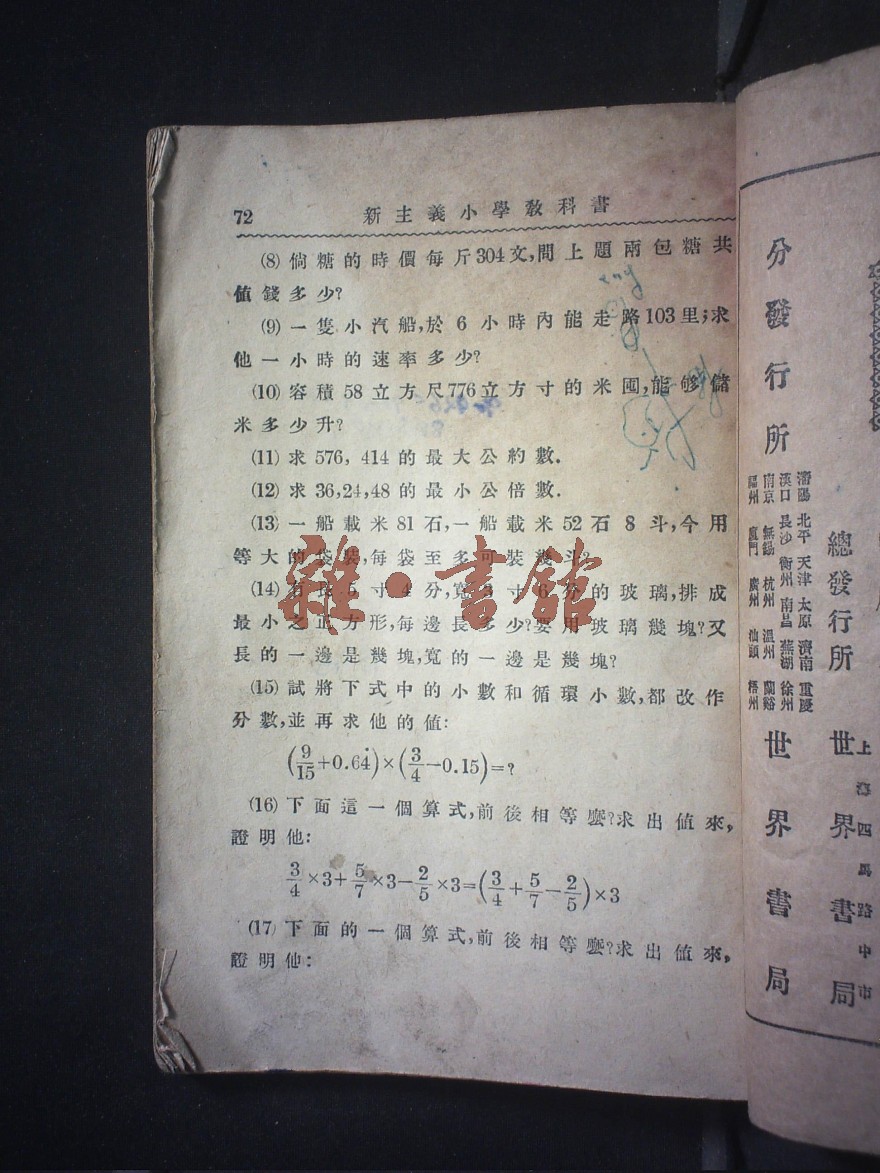 72 新主義小學教科書
(8) 倘糖的時價每斤304文,問上題兩包糖共
値錢多少?
(9) 一隻小汽船,於6小時內能走路103里;求
他一小時的速率多少?
(10) 容積58立方尺776立方寸的米囤,能够儲
米多少升?
(11) 求576, 414的最大公約數.
(12) 求36,24,48的最小公倍數.
(13) 一船載米81石,一船載米52石8斗,今用
等大的袋裝,每袋至多可裝幾斗?
(14) 有長5寸4分,寬3寸6分的玻璃,排成
最小之正方形,每邊長多少?要用玻璃幾塊?又
長的一邊是幾塊,寬的一邊是幾塊?
(15) 試將下式中的小數和循環小數,都改作
分數,並再求他的値:
(9/15+0.64̇)×(3/4−0.15)=?
(16) 下面這一個算式,前後相等麽?求出値來,
證明他:
3/4×3+5/7×3−2/5×3=(3/4+5/7−2/5)×3
(17) 下面的一個算式,前後相等麽?求出値來,
證明他:
雜·書館
總發行所
上海四馬路中市
世界書局
分發行所
瀋陽 北平 天津 太原 濟南 重慶
漢口 長沙 衡州 南昌 蕪湖 徐州
南京 無錫 杭州 溫州 蘭谿
福州 廈門 廣州 汕頭 梧州
世界書局